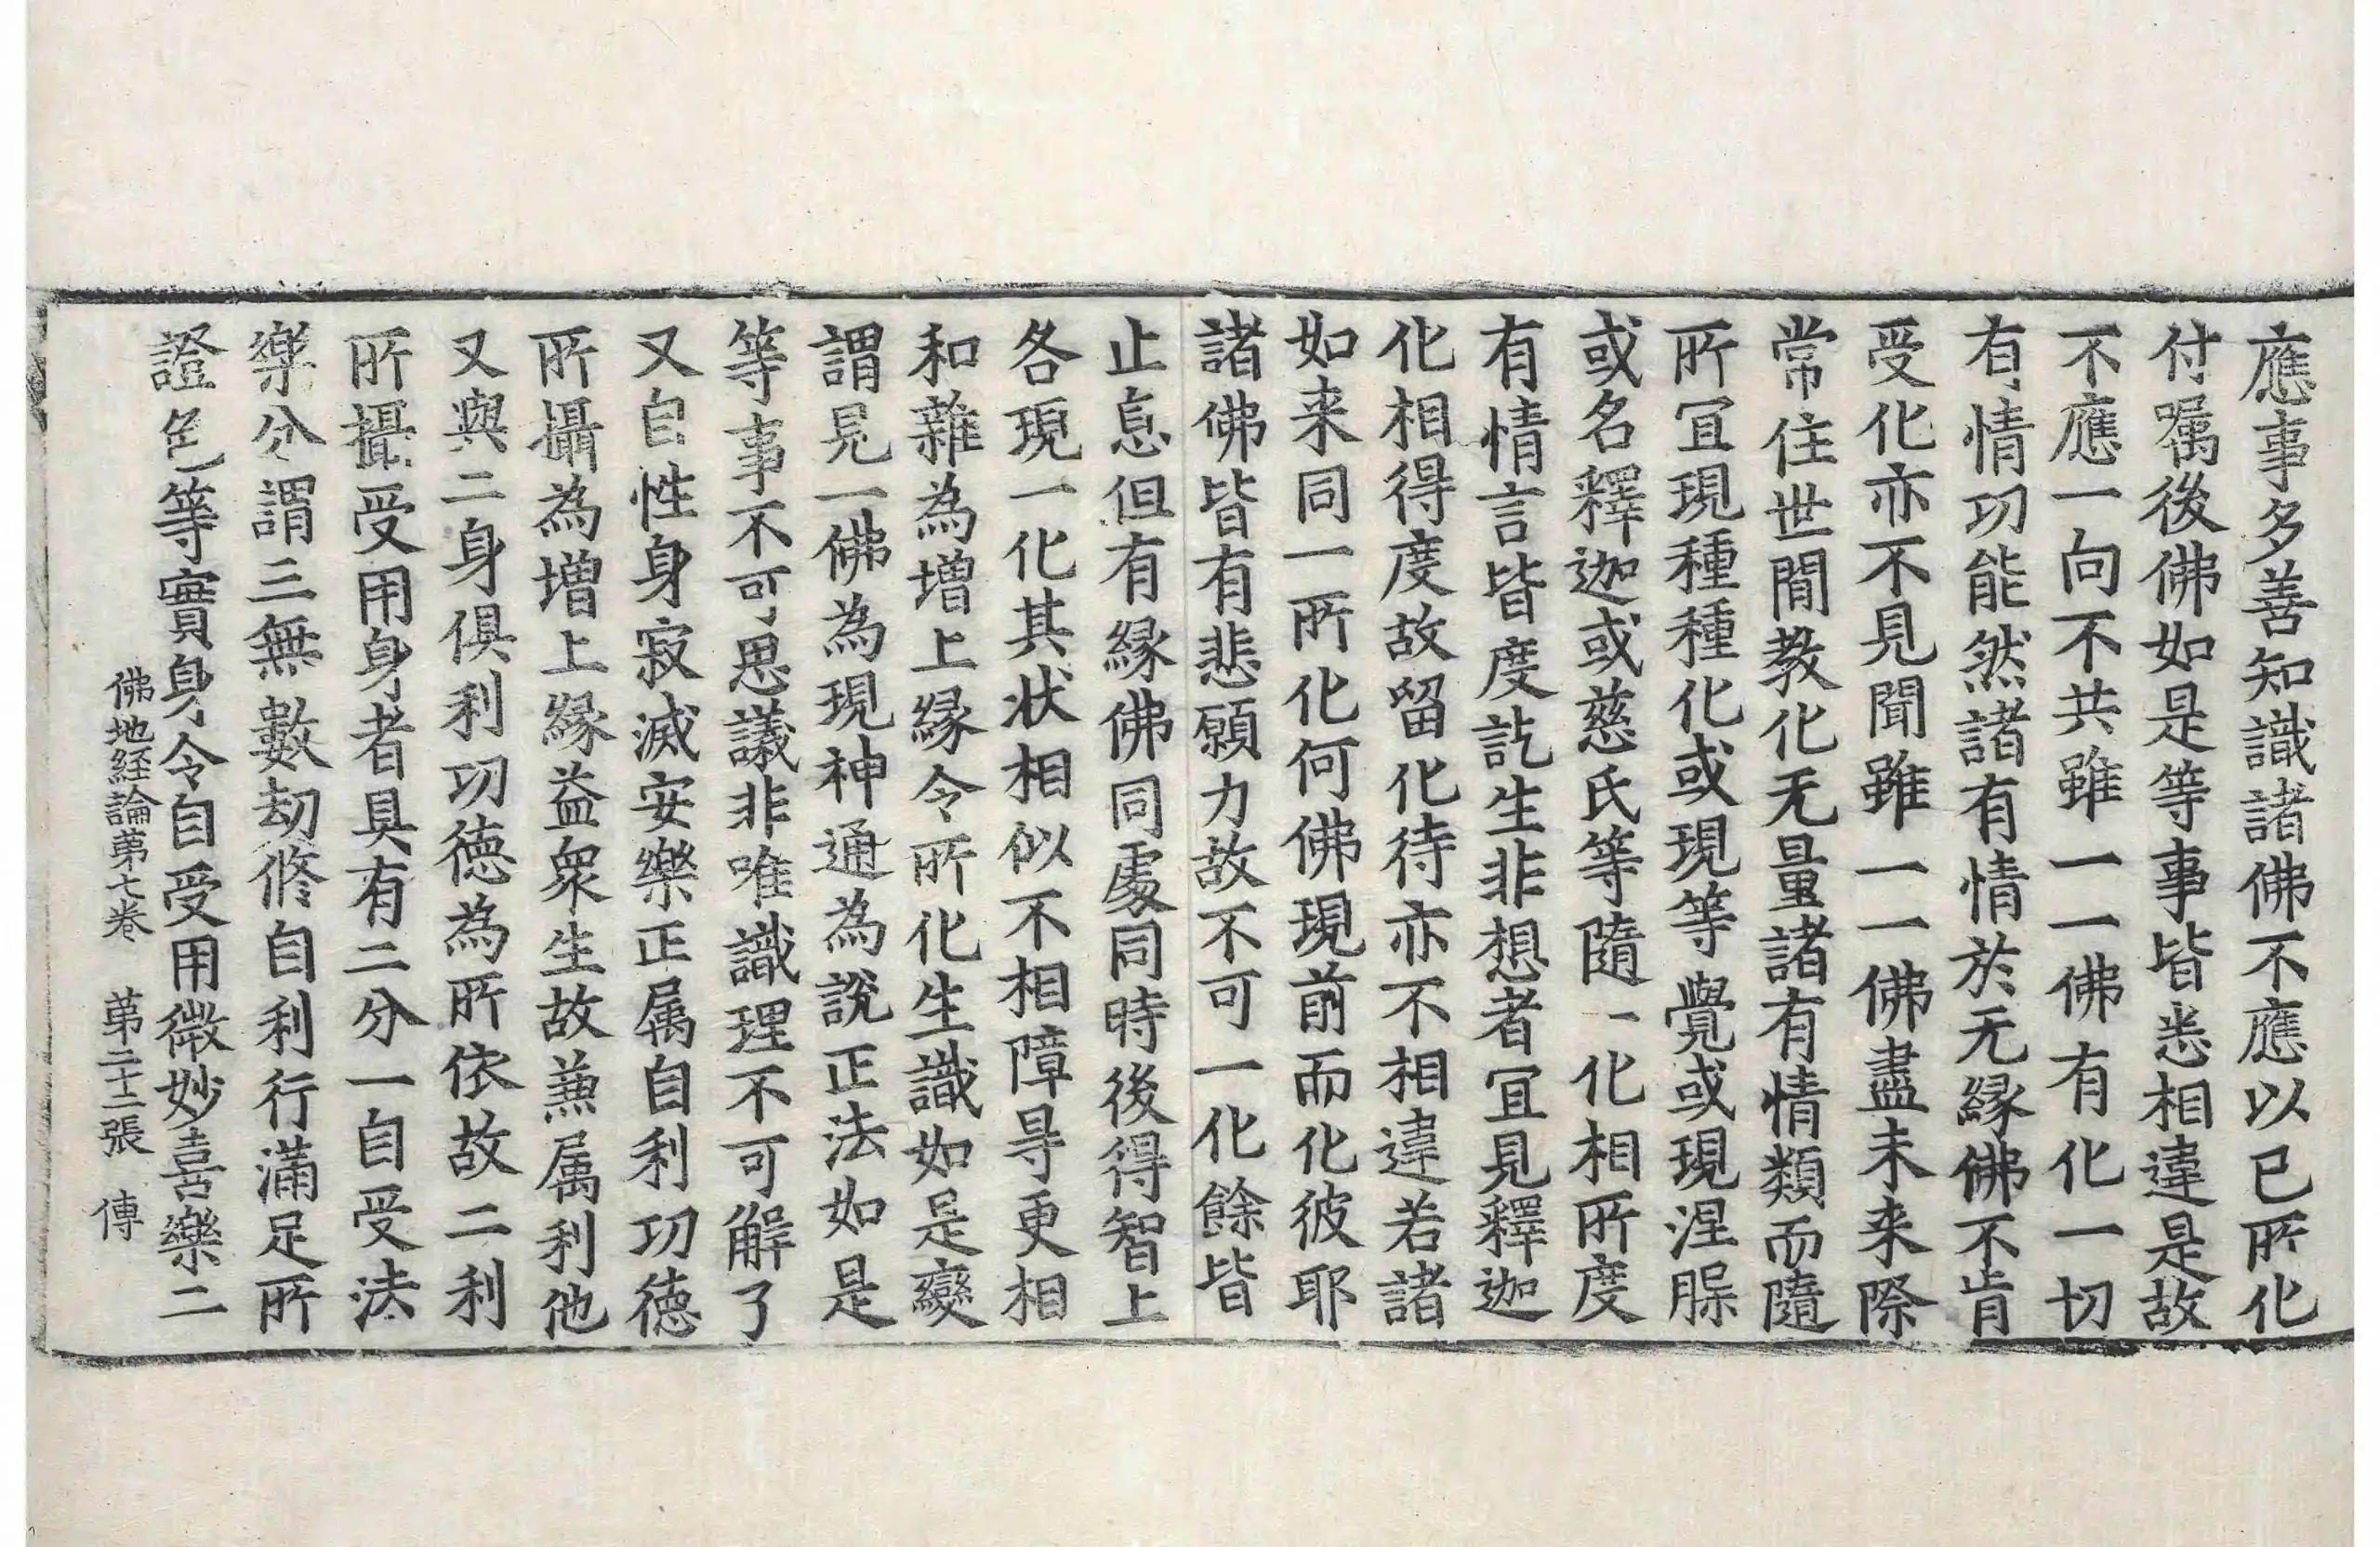 應事多善知識諸佛不應以已所化
付嘱後佛如是等事皆悉相違是故
不應一向不共雖一一佛有化一切
有情功能然諸有情於无縁佛不肯
受化亦不見聞雖一一佛盡未来際
常住世間教化无量諸有情類而隨
所冝現種種化或現等覺或現涅腂
或名釋迦或慈氏等隨一化相所度
有情言皆度訖生非想者冝見釋迦
化相得度故留化待亦不相違若諸
如来同一所化何佛現前而化彼耶
諸佛皆有悲願力故不可一化餘皆
止息但有縁佛同處同時後得智上
各現一化其状相似不相障㝵更相
和雜為增上縁令所化生識如是變
謂見一佛為現神通為說正法如是
等事不可思議非唯識理不可解了
又自性身寂滅安樂正属自利功德
所攝為增上縁益衆生故兼属利他
又與二身俱利功德為所依故二利
所攝受用身者具有二分一自受法
樂分謂三無數劫修自利行滿足所
證色等實身令自受用微妙喜樂二
佛地経論苐七卷 苐二十二張 傳